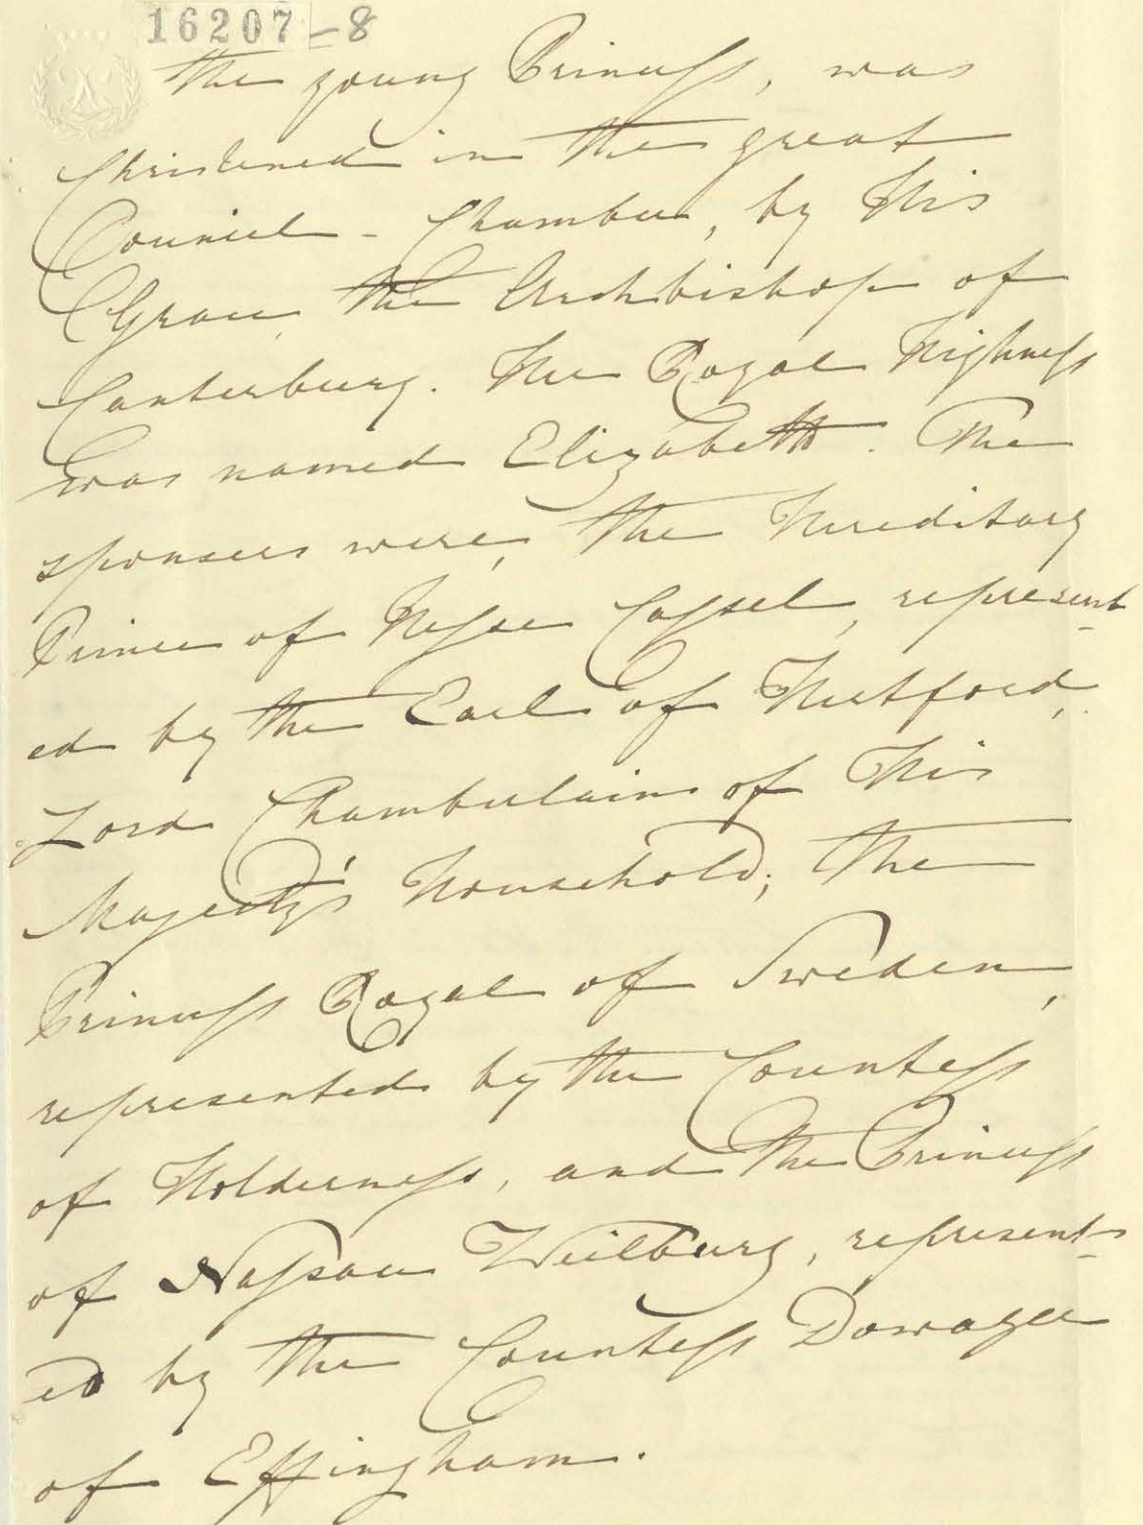 16207-8
the young Princess, was
Christened in the great
Council - Chamber, by His
Grace, the Archbishop of
Canterbury. Her Royal Highness
was named Elizabeth. The
sponsers were, the Hereditary
Prince of Hesse Cassel, represent-
ed by the Earl of Hertford,
Lord Chamberlain of His
Majesty's Household; the
Princess Royal of Sweden,
represented by the Countess
of Holderness, and the Princess
of Nassau Weilburg, represent-
ed by the Countess Dowager
of Effingham.